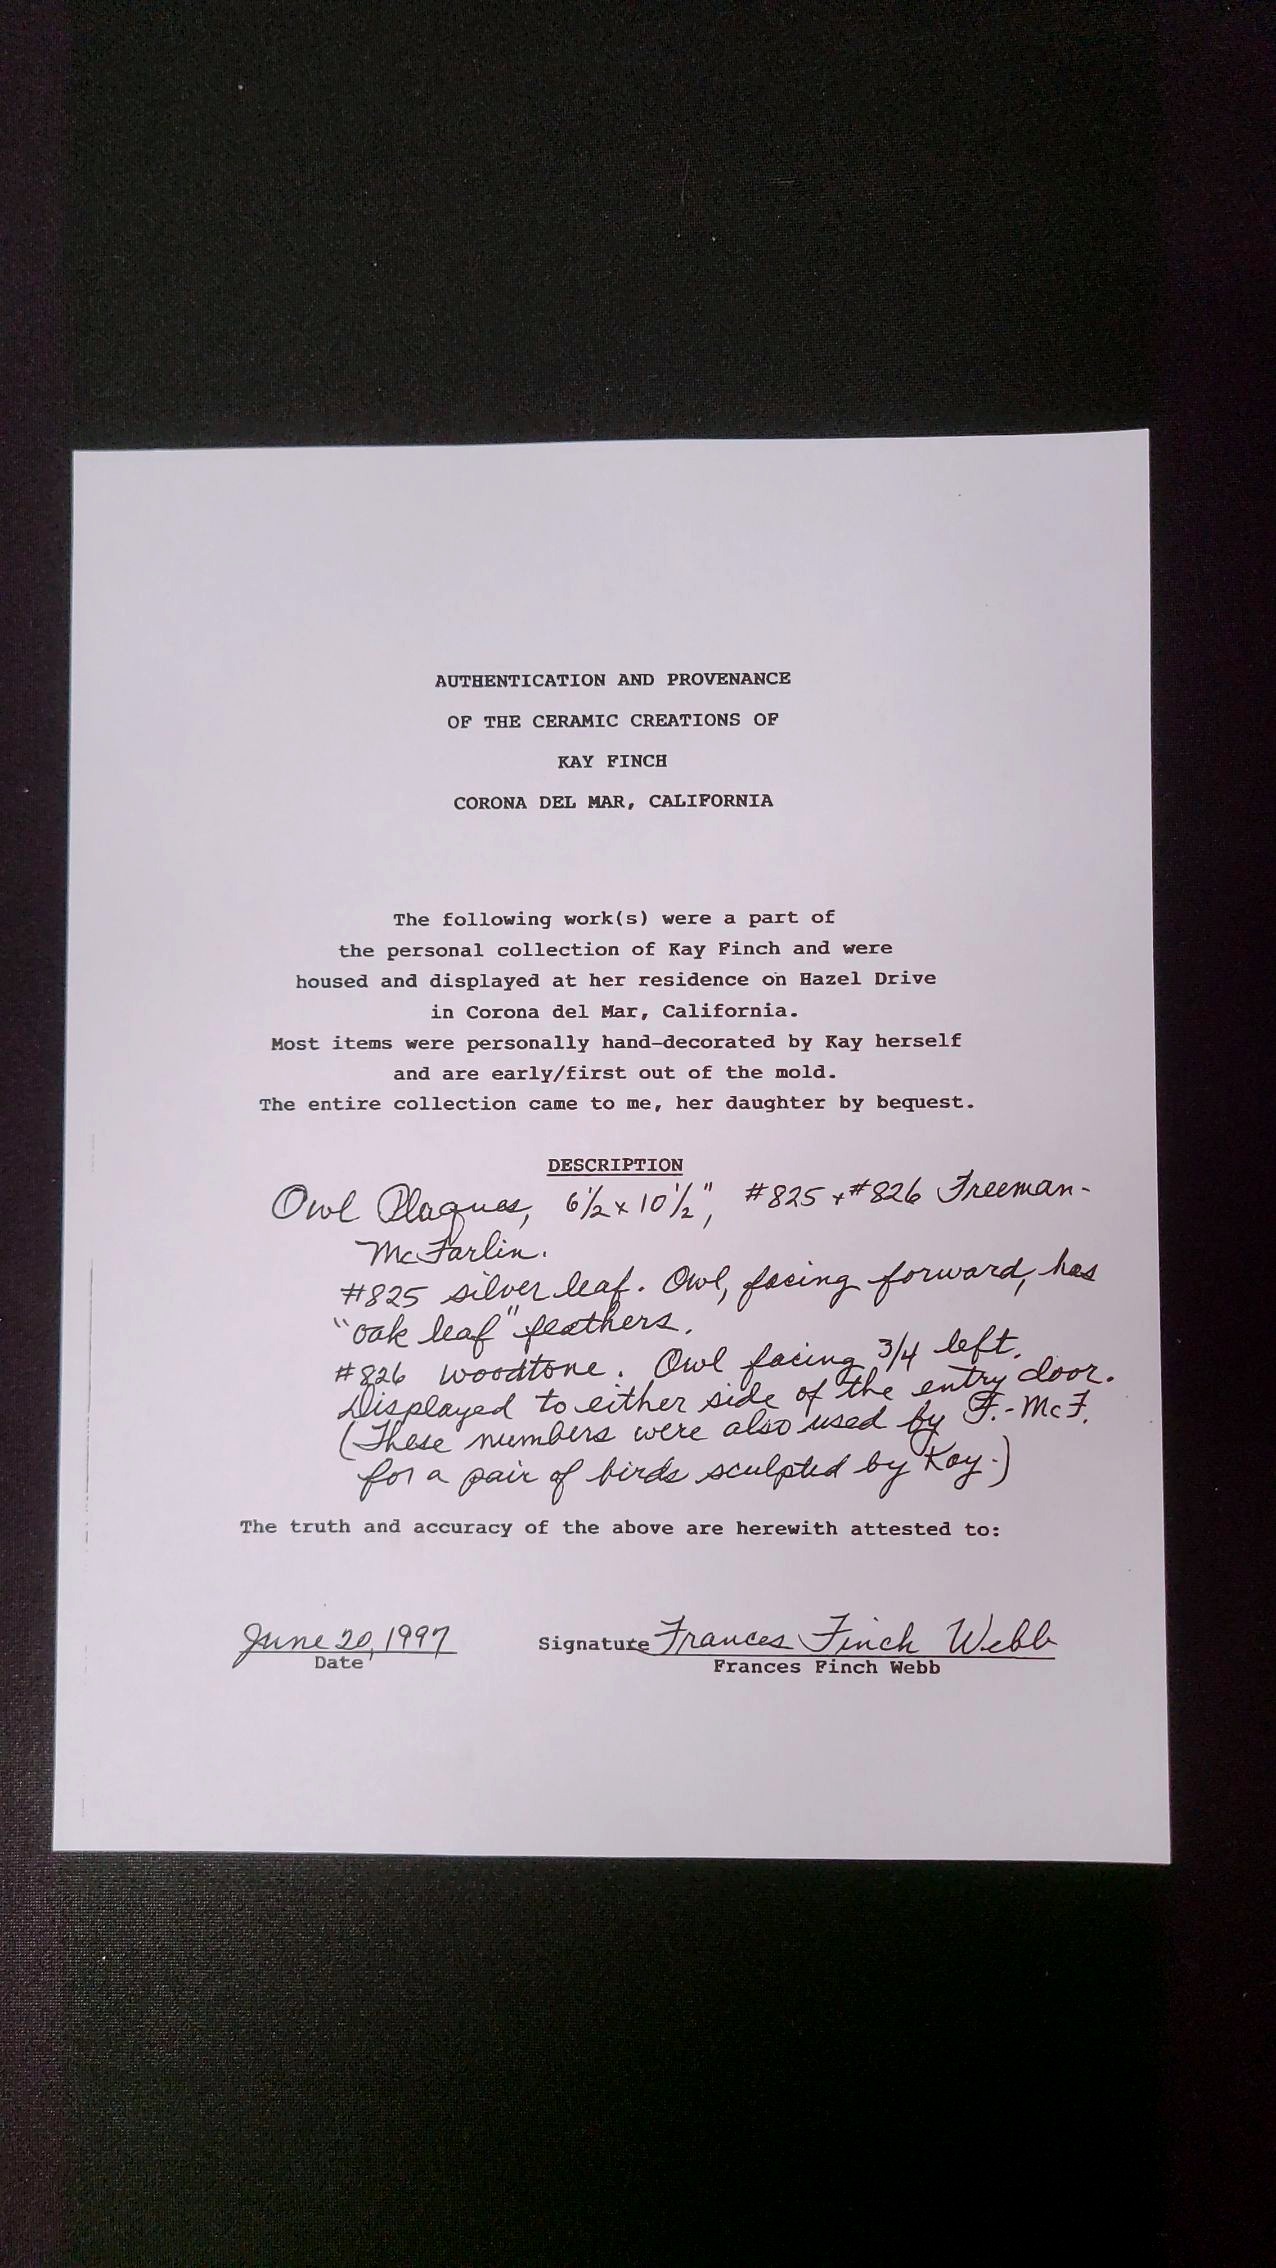 AUTHENTICATION AND PROVENANCE
OF THE CERAMIC CREATIONS OF
KAY FINCH
CORONA DEL MAR, CALIFORNIA
The following work(s) were a part of
the personal collection of Kay Finch and were
housed and displayed at her residence on Hazel Drive
in Corona del Mar, California.
Most items were personally hand-decorated by Kay herself
and are early/first out of the mold.
The entire collection came to me, her daughter by bequest.
DESCRIPTION
Owl Plaques, 6½ x 10½", #825 + #826 Freeman-
McFarlin.
#825 silver leaf. Owl, facing forward, has
"oak leaf" feathers.
#826 woodtone. Owl facing 3/4 left.
Displayed to either side of the entry door.
(These numbers were also used by F.-McF.
for a pair of birds sculpted by Kay.)
The truth and accuracy of the above are herewith attested to:
June 20, 1997 Signature Frances Finch Webb
Date Frances Finch Webb